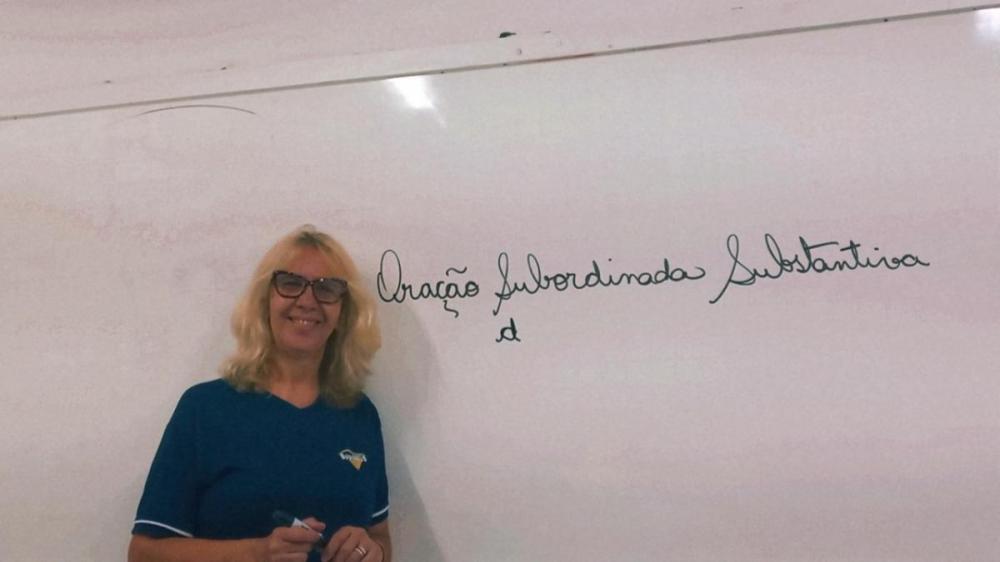 Oração Subordinada Substantiva
d